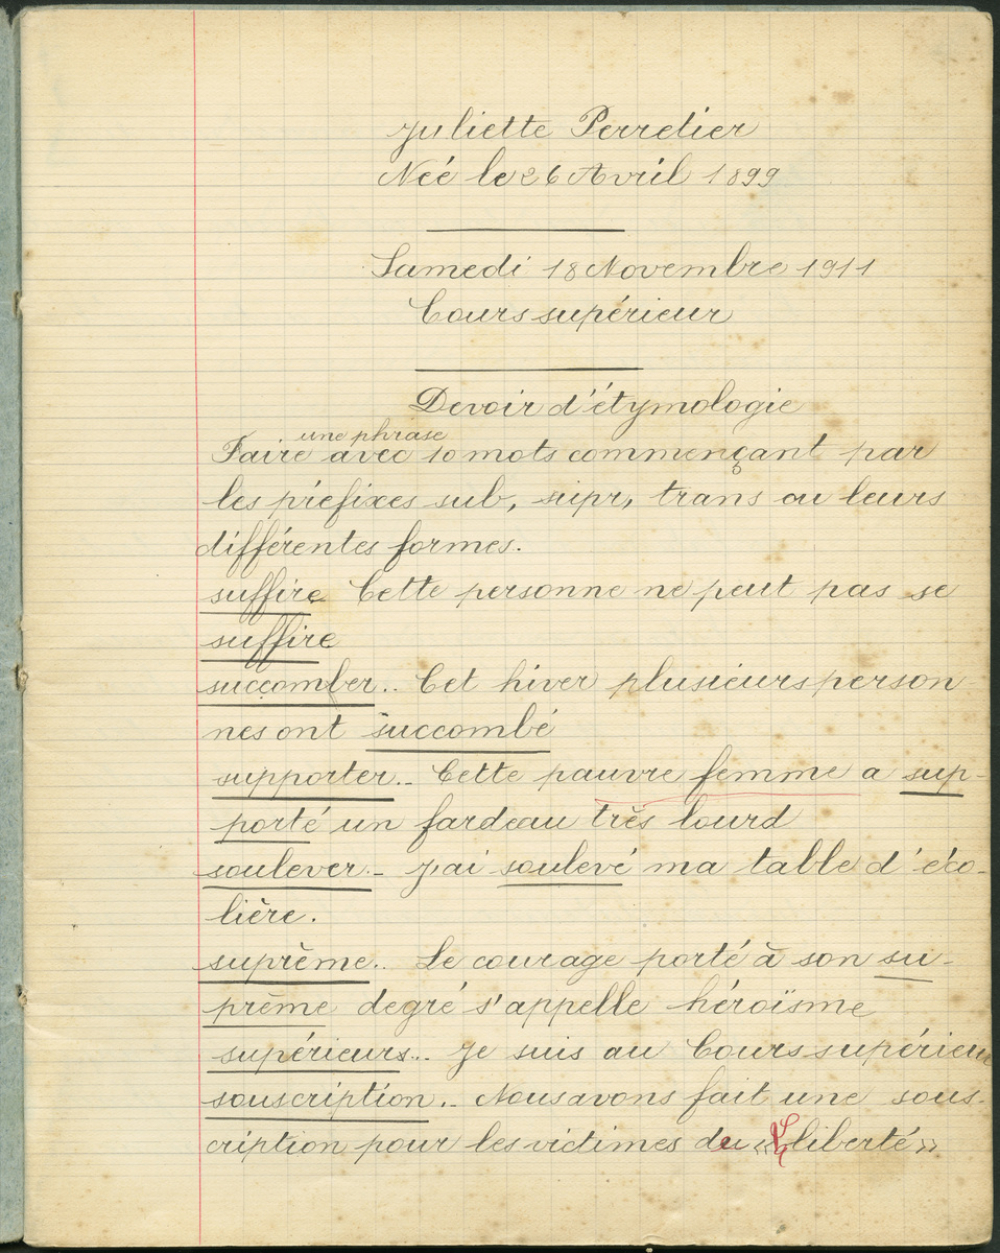 Juliette Perretier
Neé le 26 Avril 1899
Samedi 18 Novembre 1911
Cours supérieur
Devoir d'étymologie
une phrase
Faire avec 10 mots commençant par
les préfixes sub, supr, trans ou leurs
différentes formes.
suffire Cette personne ne peut pas se
suffire
succomber.. Cet hiver plusieurs person
nes ont succombé
supporter.. Cette pauvre femme a sup-
porté un fardeau très lourd
soulever.- J'ai soulevé ma table d'éco-
lière.
suprême.. Le courage porté à son su-
prême degré s'appelle héroïsme
supérieurs.. Je suis au Cours supérieu
souscription.. Nous avons fait une sous-
cription pour les victimes de «Liberté»